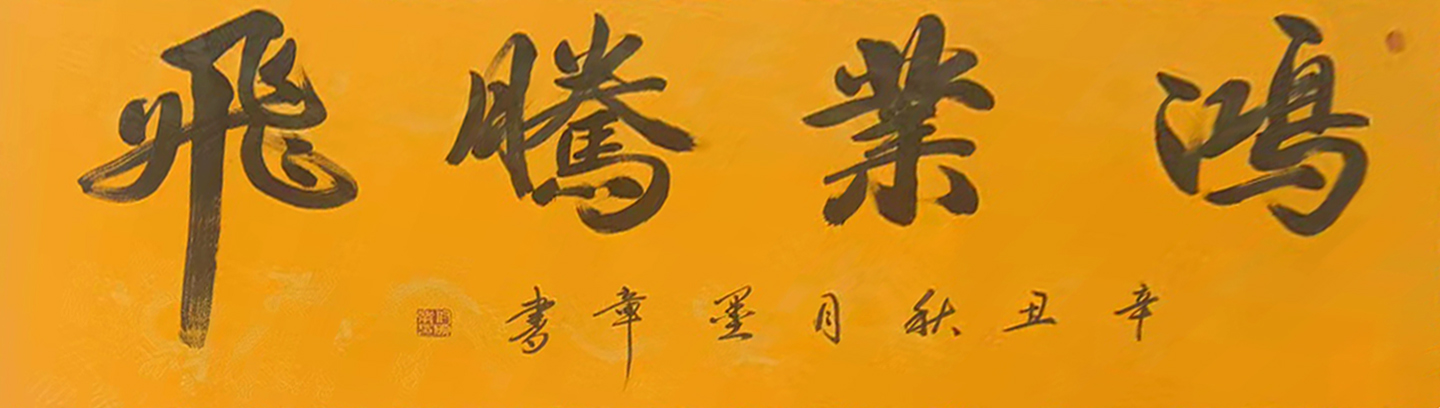 鴻業騰飛
辛丑秋月墨章書